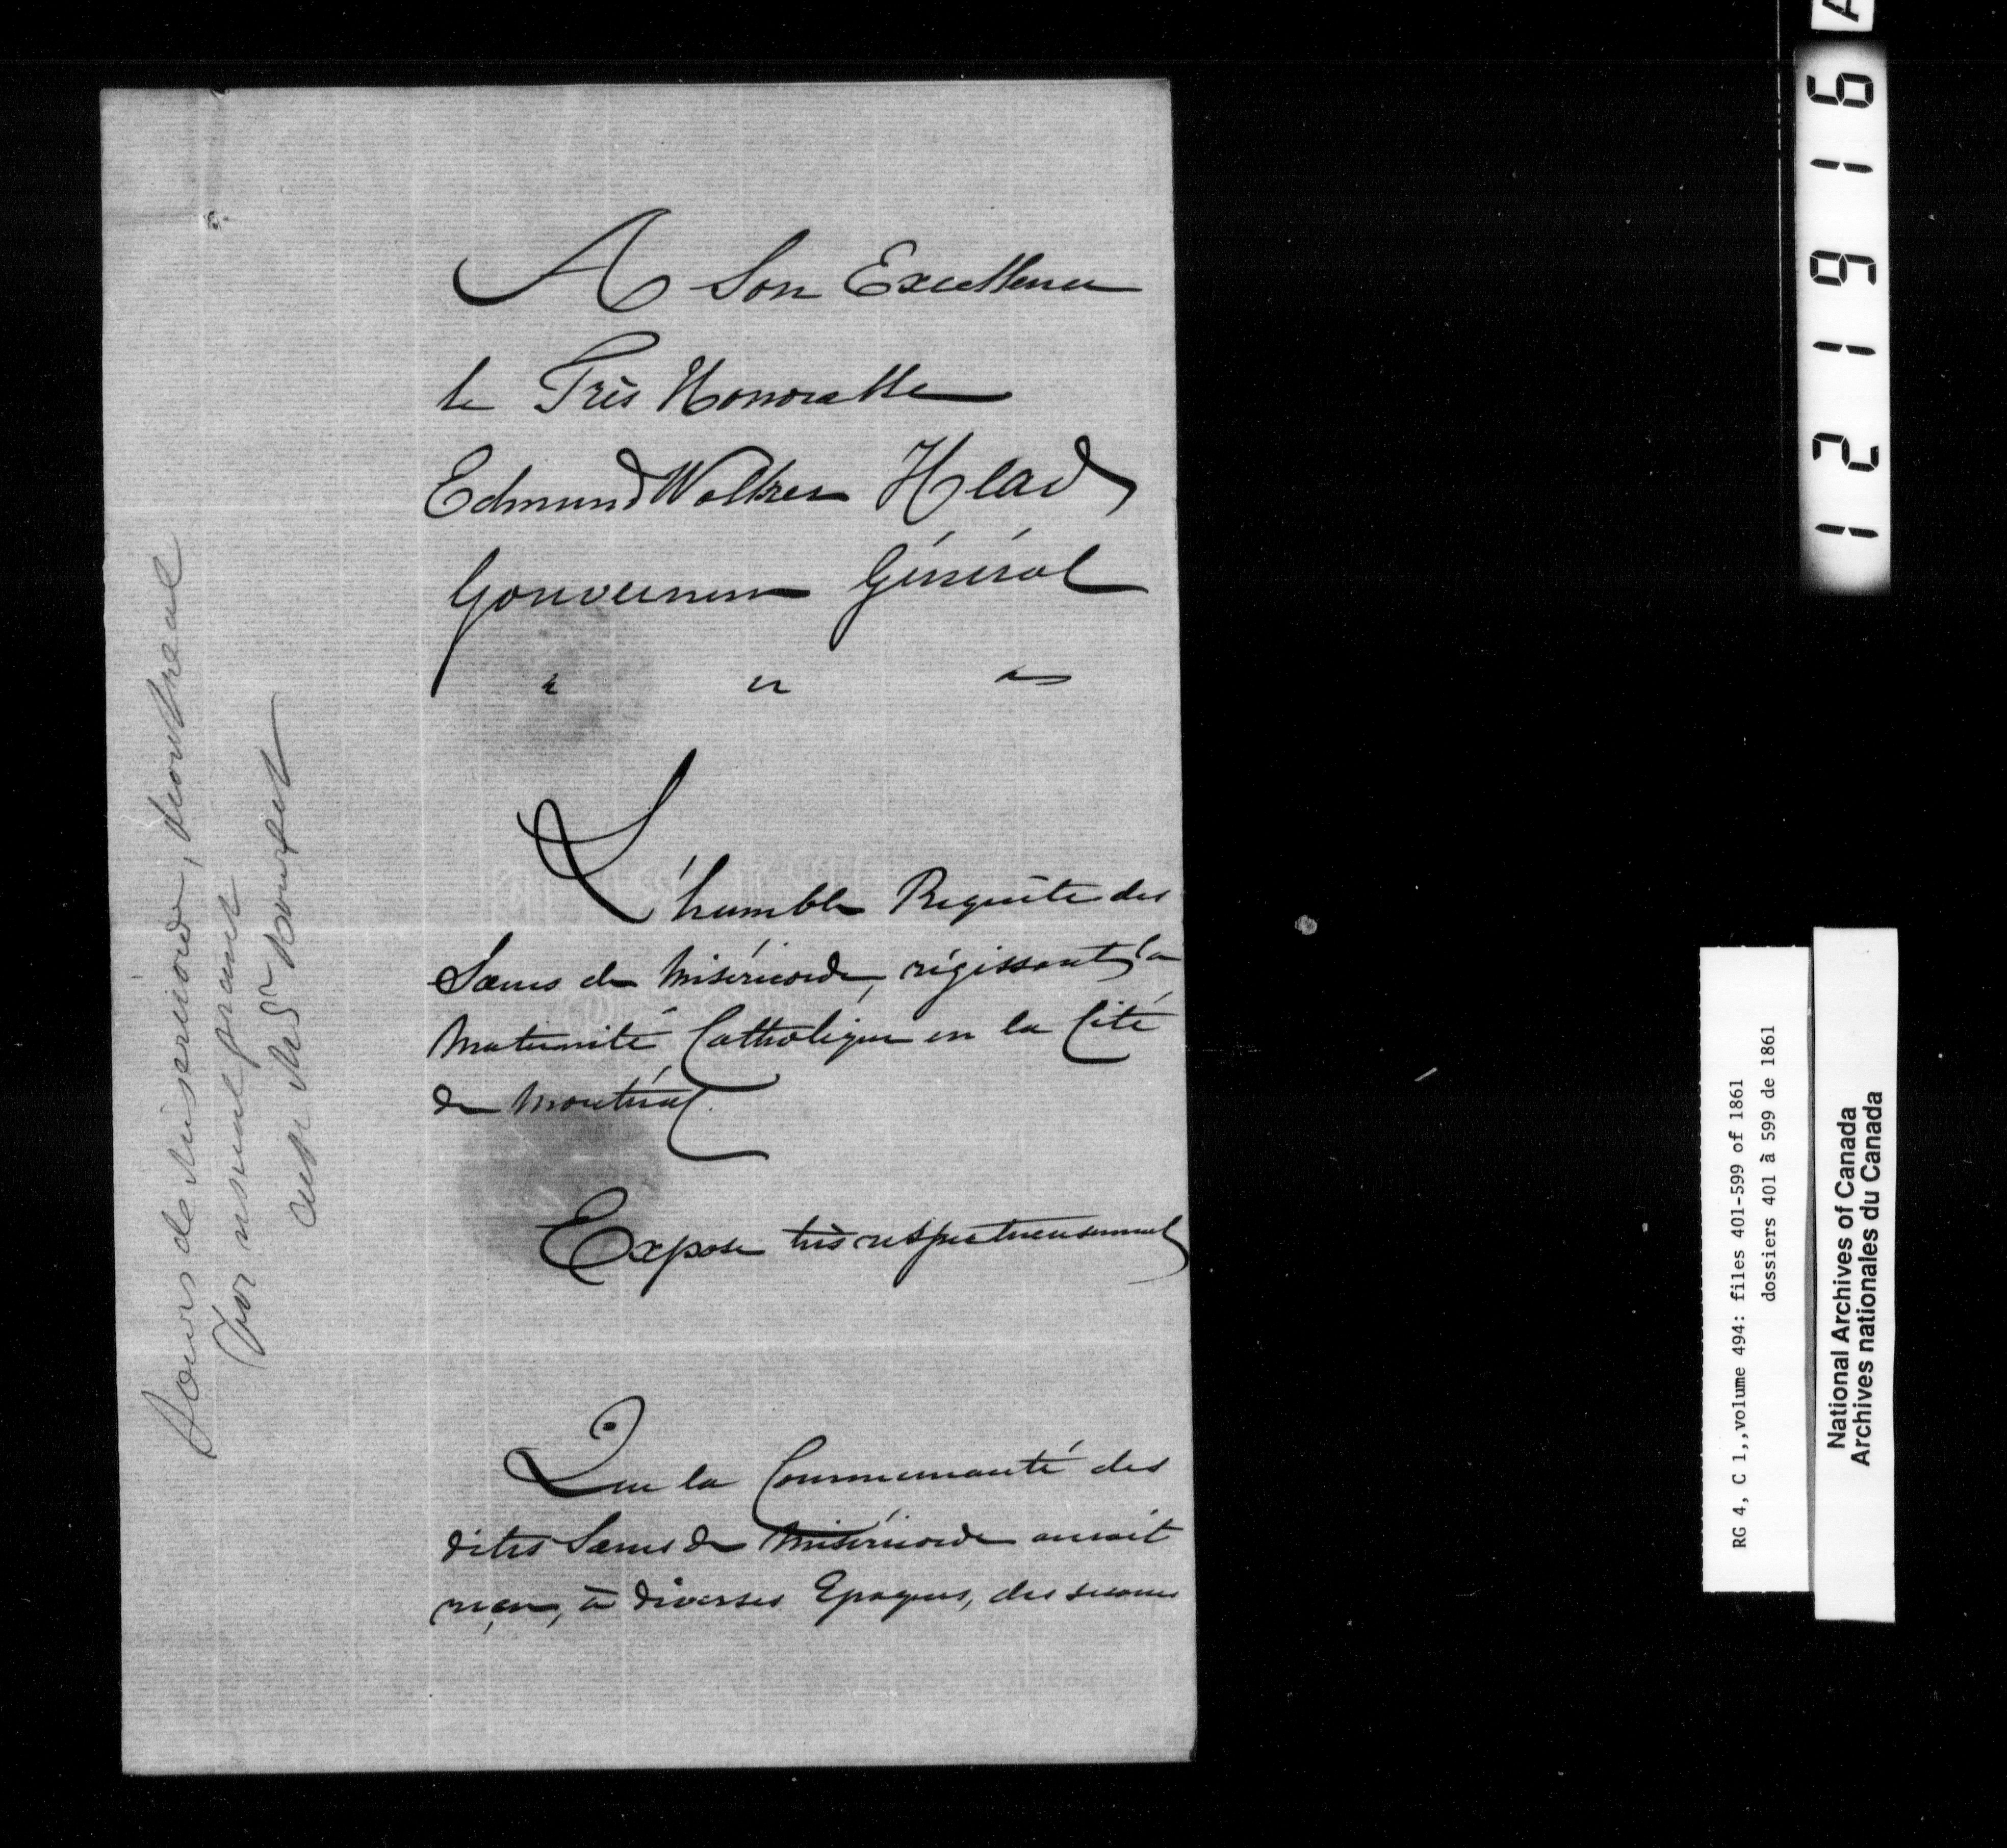 A Son Excellence
le Très Honorable
Edmund Walker Head
Gouverneur Général
" " "
L'humble Requête des
Sœurs de Miséricorde, régissant la
Maternité Catholique en la Cité
de Montréal.
Expose très respectueusement
Que la Communauté des
dites Sœurs de Miséricorde aurait
reçu, à diverses Epoques, des secours
Sœurs de Misericorde, Montreal
for usual grant
121916
RG 4, C 1,,volume 494: files 401-599 of 1861
dossiers 401 à 599 de 1861
National Archives of Canada
Archives nationales du Canada